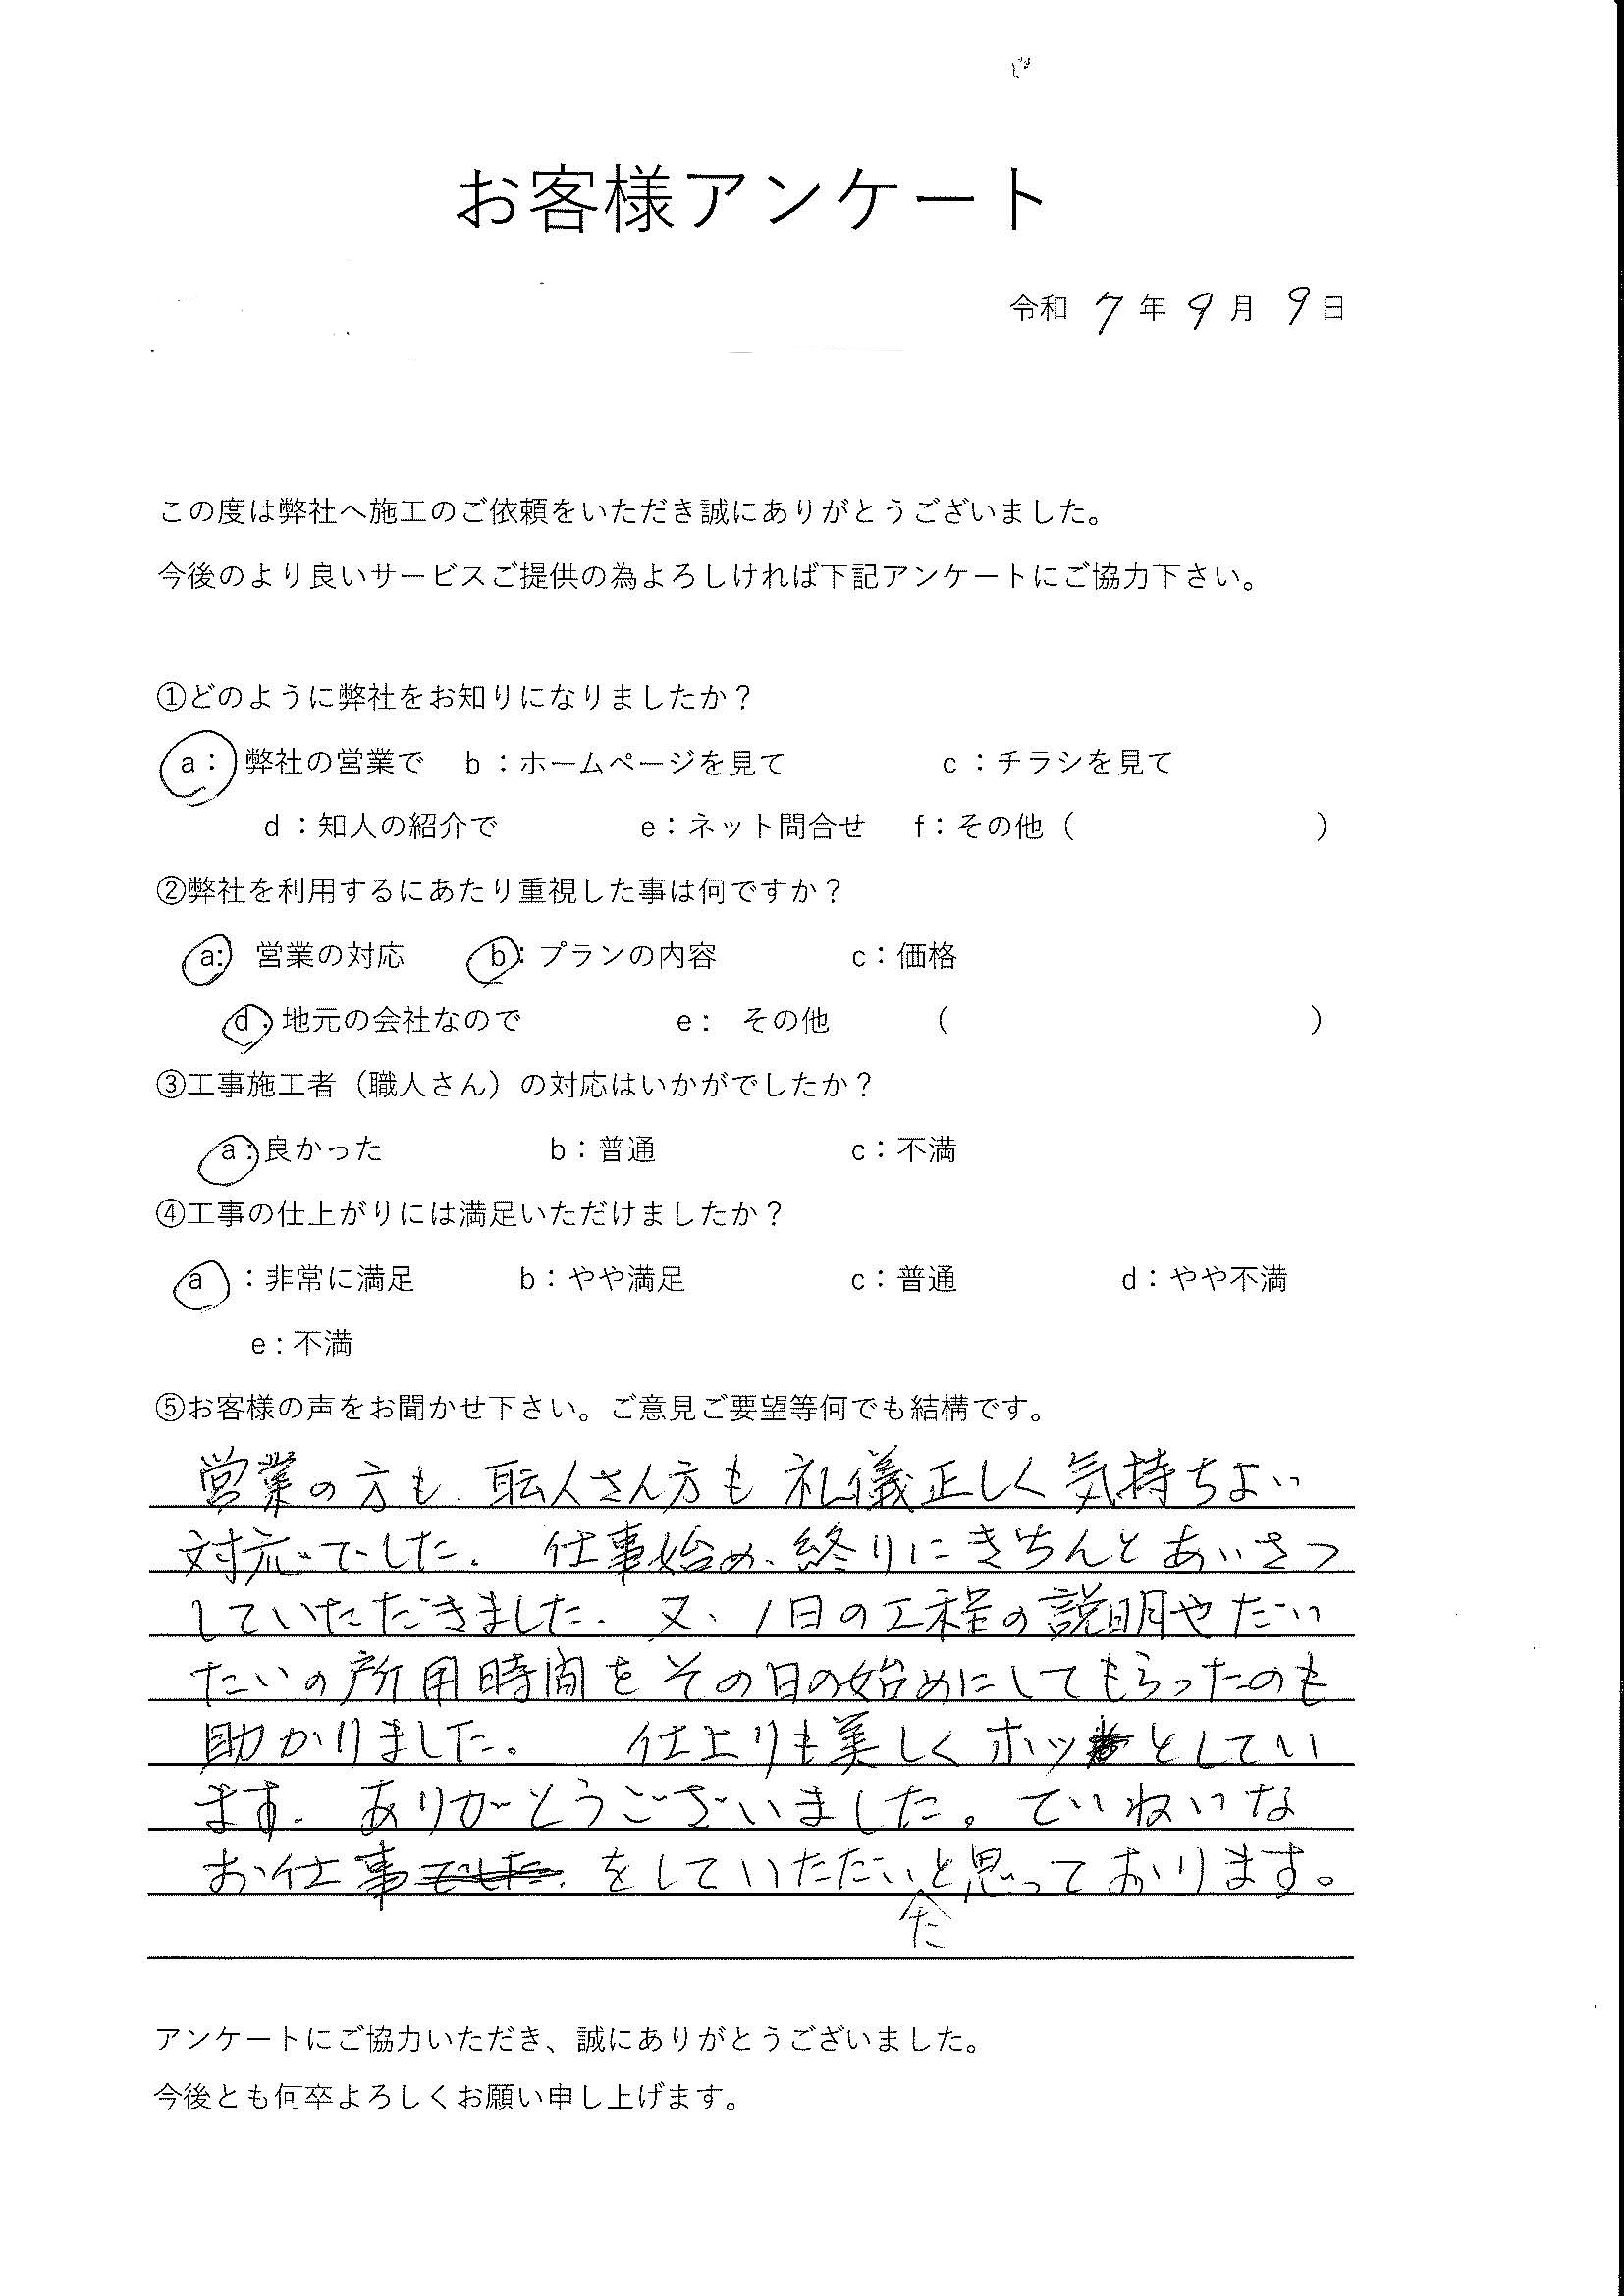 お客様アンケート
令和 7 年 9 月 9 日
この度は弊社へ施工のご依頼をいただき誠にありがとうございました。
今後のより良いサービスご提供の為よろしければ下記アンケートにご協力下さい。
①どのように弊社をお知りになりましたか？
a： 弊社の営業で b：ホームページを見て c：チラシを見て
d：知人の紹介で e：ネット問合せ f：その他（ ）
②弊社を利用するにあたり重視した事は何ですか？
a: 営業の対応 b：プランの内容 c：価格
d：地元の会社なので e： その他 （ ）
③工事施工者（職人さん）の対応はいかがでしたか？
a：良かった b：普通 c：不満
④工事の仕上がりには満足いただけましたか？
a ：非常に満足 b：やや満足 c：普通 d：やや不満
e：不満
⑤お客様の声をお聞かせ下さい。ご意見ご要望等何でも結構です。
営業の方も、職人さん方も 礼儀正しく気持ちよい
対応でした。 仕事始め、終りにきちんとあいさつ
していただきました。又、1日の工程の説明やだい
たいの所用時間をその日の始めにしてもらったのも
助かりました。 仕上りも美しくホッとしてい
ます。ありがとうございました。ていねいな
お仕事でした。をしていただいたと思っております。
アンケートにご協力いただき、誠にありがとうございました。
今後とも何卒よろしくお願い申し上げます。